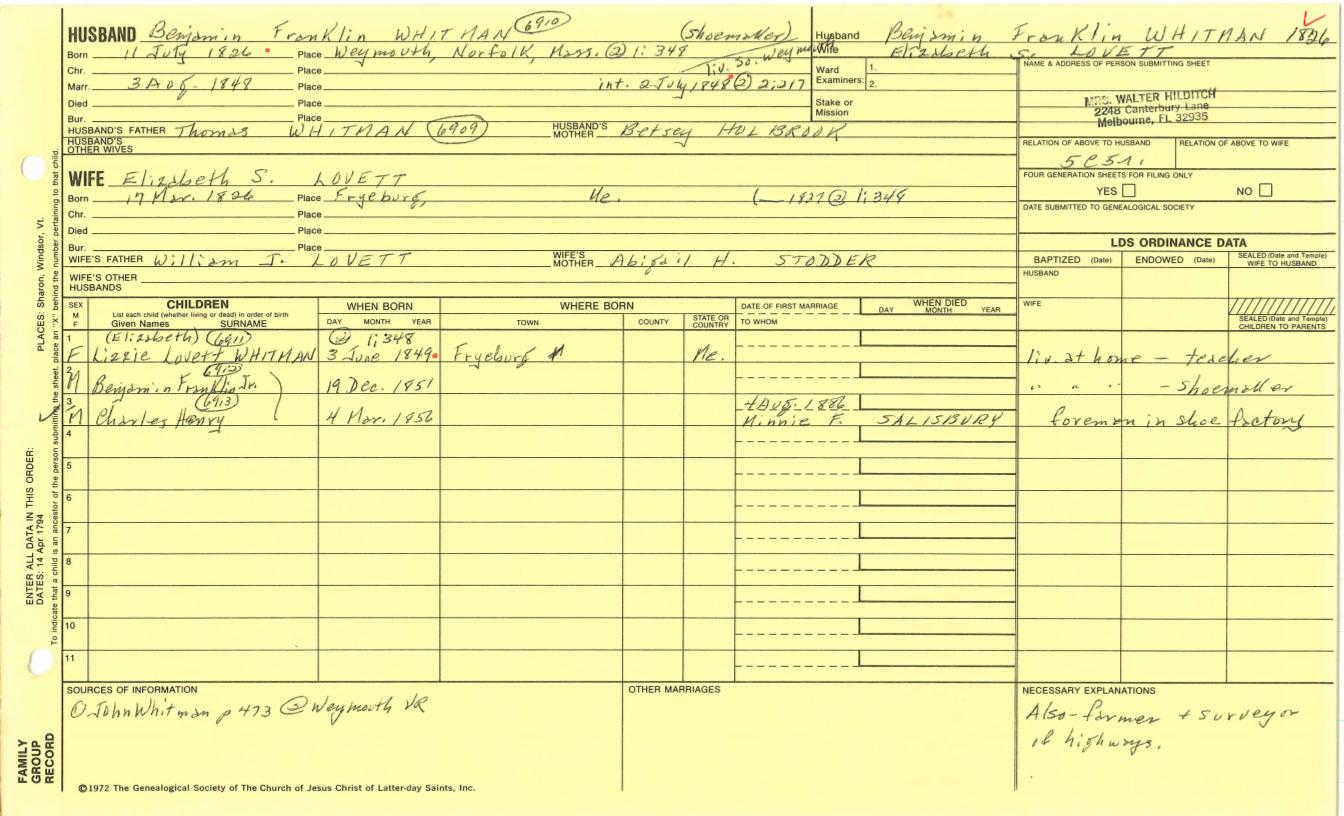 HUSBAND Benjamin Franklin WHITMAN 6910 (shoemaker)
Born 11 July 1826 Place Weymouth, Norfolk, Mass. ② 1:348 liv. So. Weymouth
Chr. Place
Marr. 3 Aug. 1848 Place int. 2 July 1848 ② 2:217
Died Place
Bur. Place
HUSBAND'S FATHER Thomas WHITMAN 6909 HUSBAND'S MOTHER Betsey HOLBROOK
HUSBAND'S OTHER WIVES
Husband Benjamin Franklin WHITMAN 1826
Wife Elizabeth S. LOVETT
Ward Examiners: 1.
2.
Stake or Mission
NAME & ADDRESS OF PERSON SUBMITTING SHEET
MRS. WALTER HILDITCH
2248 Canterbury Lane
Melbourne, FL 32935
RELATION OF ABOVE TO HUSBAND RELATION OF ABOVE TO WIFE
5C5r.
FOUR GENERATION SHEETS FOR FILING ONLY
YES NO
DATE SUBMITTED TO GENEALOGICAL SOCIETY
WIFE Elizabeth S. LOVETT
Born 17 Mar. 1826 Place Fryeburg, Me. (— 1827 ② 1:348
Chr. Place
Died Place
Bur. Place
WIFE'S FATHER William J. LOVETT WIFE'S MOTHER Abigail H. STODDER
WIFE'S OTHER HUSBANDS
LDS ORDINANCE DATA
BAPTIZED (Date) ENDOWED (Date) SEALED (Date and Temple) WIFE TO HUSBAND
HUSBAND
WIFE
SEALED (Date and Temple) CHILDREN TO PARENTS
SEX M F CHILDREN WHEN BORN WHERE BORN DATE OF FIRST MARRIAGE WHEN DIED
List each child (whether living or dead) in order of birth
Given Names SURNAME DAY MONTH YEAR TOWN COUNTY STATE OR COUNTRY TO WHOM DAY MONTH YEAR
1 (Elizabeth) 6911 ② 1:348
F Lizzie Lovett WHITMAN 3 June 1849 Fryeburg Me. liv. at home — teacher
2 6912
M Benjamin Franklin Jr. 19 Dec. 1851 " " " — shoemaker
3 6913 4 Aug. 1886
M Charles Henry 4 Mar. 1856 Minnie F. SALISBURY foreman in shoe factory
4
5
6
7
8
9
10
11
SOURCES OF INFORMATION
① John Whitman p 473 ② Weymouth VR
OTHER MARRIAGES
NECESSARY EXPLANATIONS
Also-farmer + surveyor
of highways.
©1972 The Genealogical Society of The Church of Jesus Christ of Latter-day Saints, Inc.
FAMILY GROUP RECORD
ENTER ALL DATA IN THIS ORDER:
DATES: 14 Apr 1794
PLACES: Sharon, Windsor, Vt.
To indicate that a child is an ancestor of the person submitting the sheet, place an "X" behind the number pertaining to that child.